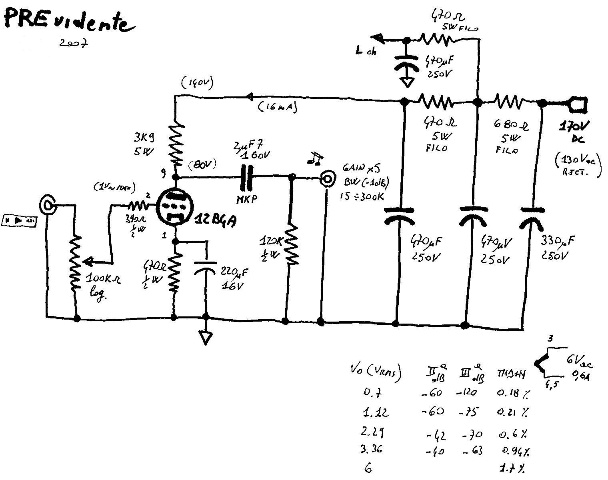 PREvidente
2007
470Ω
5W FILO
L ch
470µF
250V
(140V)
(16mA)
3K9
5W
9
(80V)
2µF7
160V
MKP
GAIN x5
BW (-1dB)
15÷300K
470Ω
5W
FILO
680Ω
5W
FILO
170V
DC
(130Vac
RETT.)
2
1/2W
12B4A
1
100KΩ
log.
470Ω
1/2W
220µF
16V
120K
1/2W
470µF
250V
470µF
250V
330µF
250V
3
6Vac
0,6A
4,5
Vo (VRMS) IIa dB IIIa dB THD+N
0.7 -60 -120 0.18%
1.12 -60 -75 0.21%
2.29 -42 -70 0.6%
3.36 -40 -63 0.94%
6 1.7%